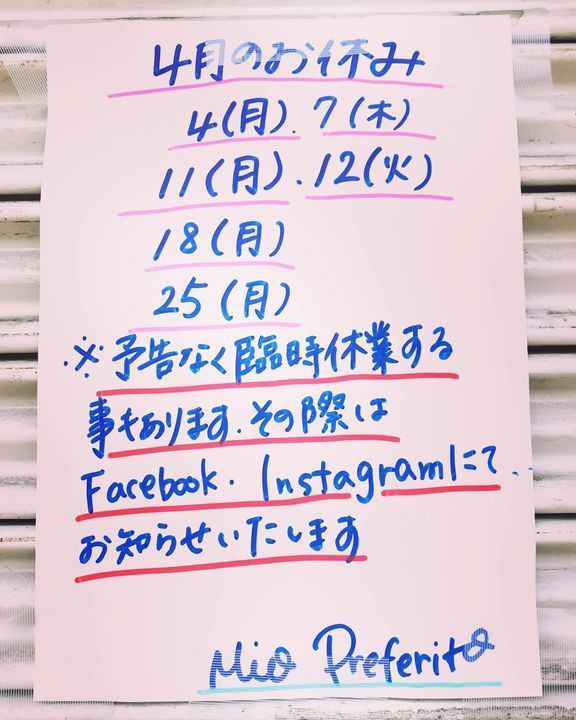 4月のお休み
4(月). 7(木)
11(月). 12(火)
18(月)
25(月)
※予告なく臨時休業する
事もあります.その際は
Facebook. Instagramにて..
お知らせいたします
Mio Preferito